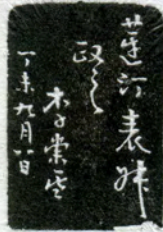 莲汀表妹
政之
李崇丞
丁未九月八日